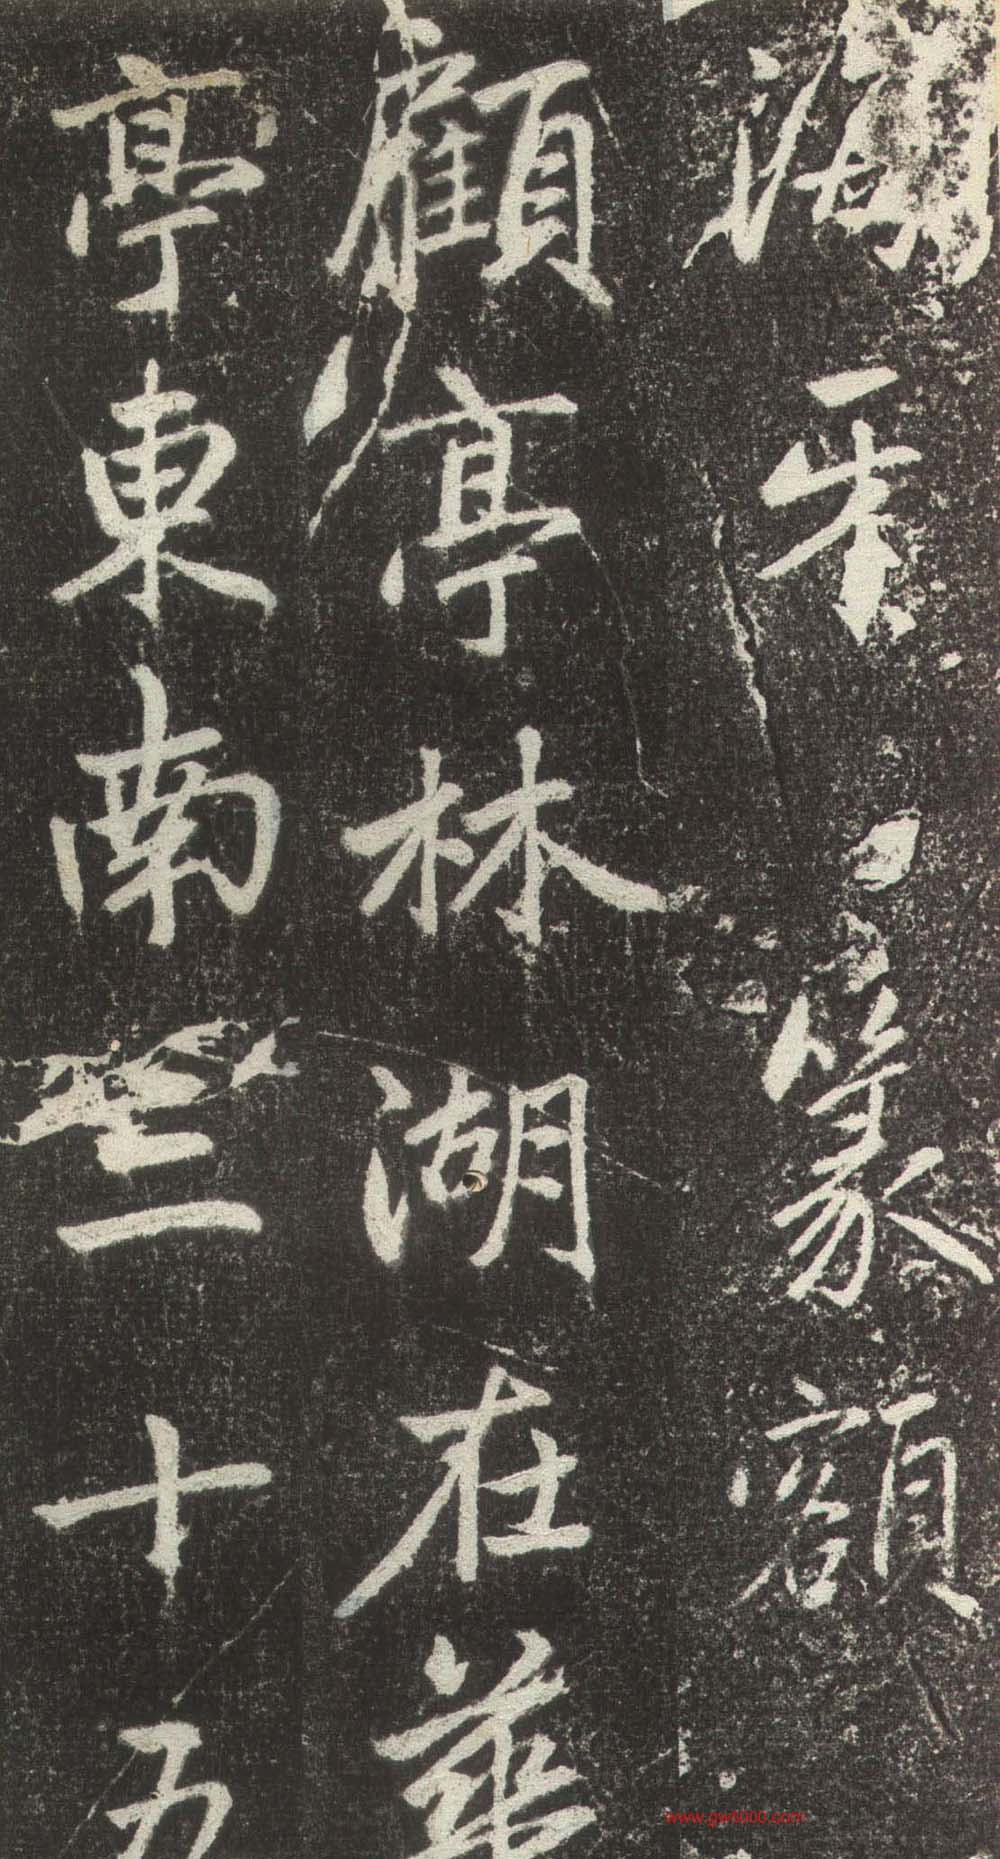 海牙篆額
顧亭林湖在華
亭東南三十五
www.gw6000.com